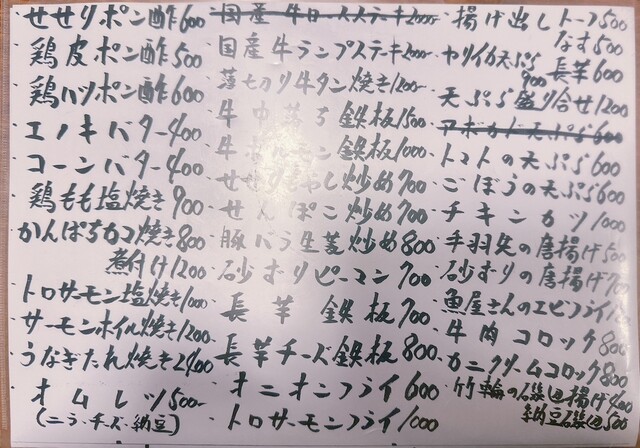 せせりポン酢600
鶏皮ポン酢500
鶏ハツポン酢600
エノキバター400
コーンバター400
鶏もも塩焼き900
かんぱちカマ焼き800
煮付け1200
トロサーモン塩焼き1000
サーモンホイル焼き1200
うなぎたれ焼き2400
オムレツ500
(ニラ・チーズ・納豆)
国産牛ロースステーキ2000
国産牛ランプステーキ2000
薄切り牛タン焼き1200
牛中落ち鉄板1500
牛ホルモン鉄板1000
せせりもやし炒め700
せんぽこ炒め700
豚バラ生姜炒め800
砂ずりピーマン700
長芋鉄板700
長芋チーズ鉄板800
オニオンフライ600
トロサーモンフライ1000
揚げ出しトーフ500
なす500
長芋600
ヤリイカ天ぷら900
天ぷら盛り合せ1200
アボカド天ぷら600
トマトの天ぷら600
ごぼうの天ぷら600
チキンカツ1000
手羽先の唐揚げ500
砂ずりの唐揚げ700
魚屋さんのエビフライ
牛肉コロッケ800
カニクリームコロッケ800
竹輪の磯辺揚げ400
納豆磯辺500